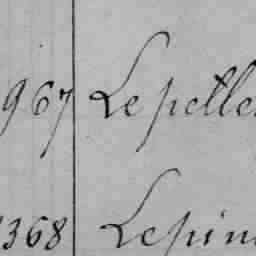 967 Lepelle
368 Lepin